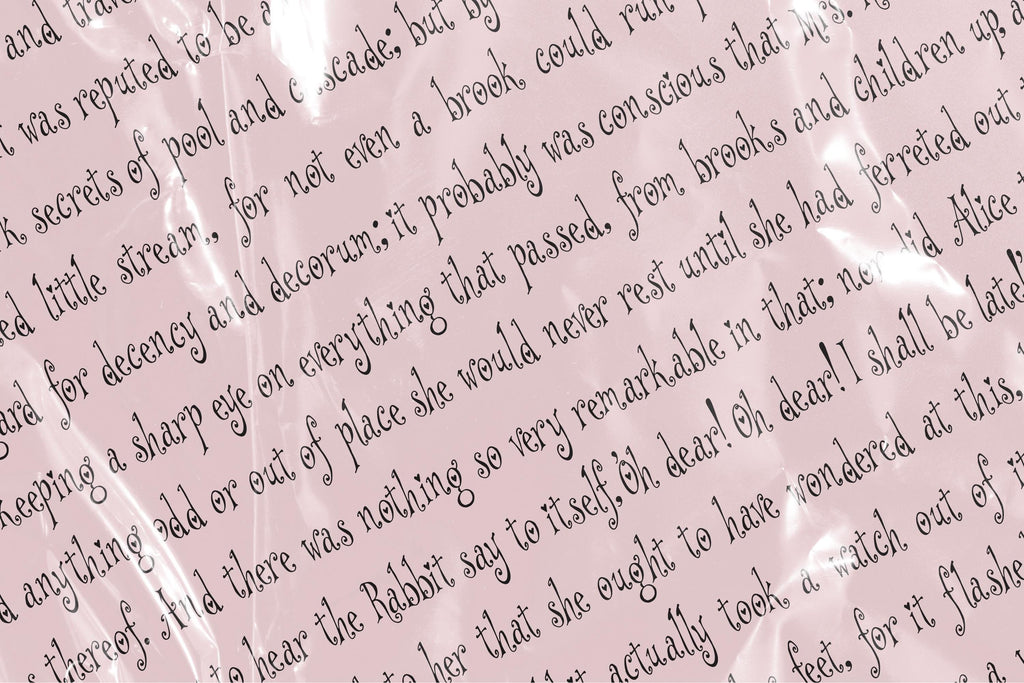 and
it was reputed to be
secrets of pool and cascade; but by
little stream, for not even a brook could run
for decency and decorum; it probably was conscious that Mrs.
keeping a sharp eye on everything that passed, from brooks and children up,
anything odd or out of place she would never rest until she had ferreted out
thereof. And there was nothing so very remarkable in that; nor did Alice
to hear the Rabbit say to itself, 'Oh dear! Oh dear! I shall be late!'
to her that she ought to have wondered at this,
actually took a watch out of
feet, for it